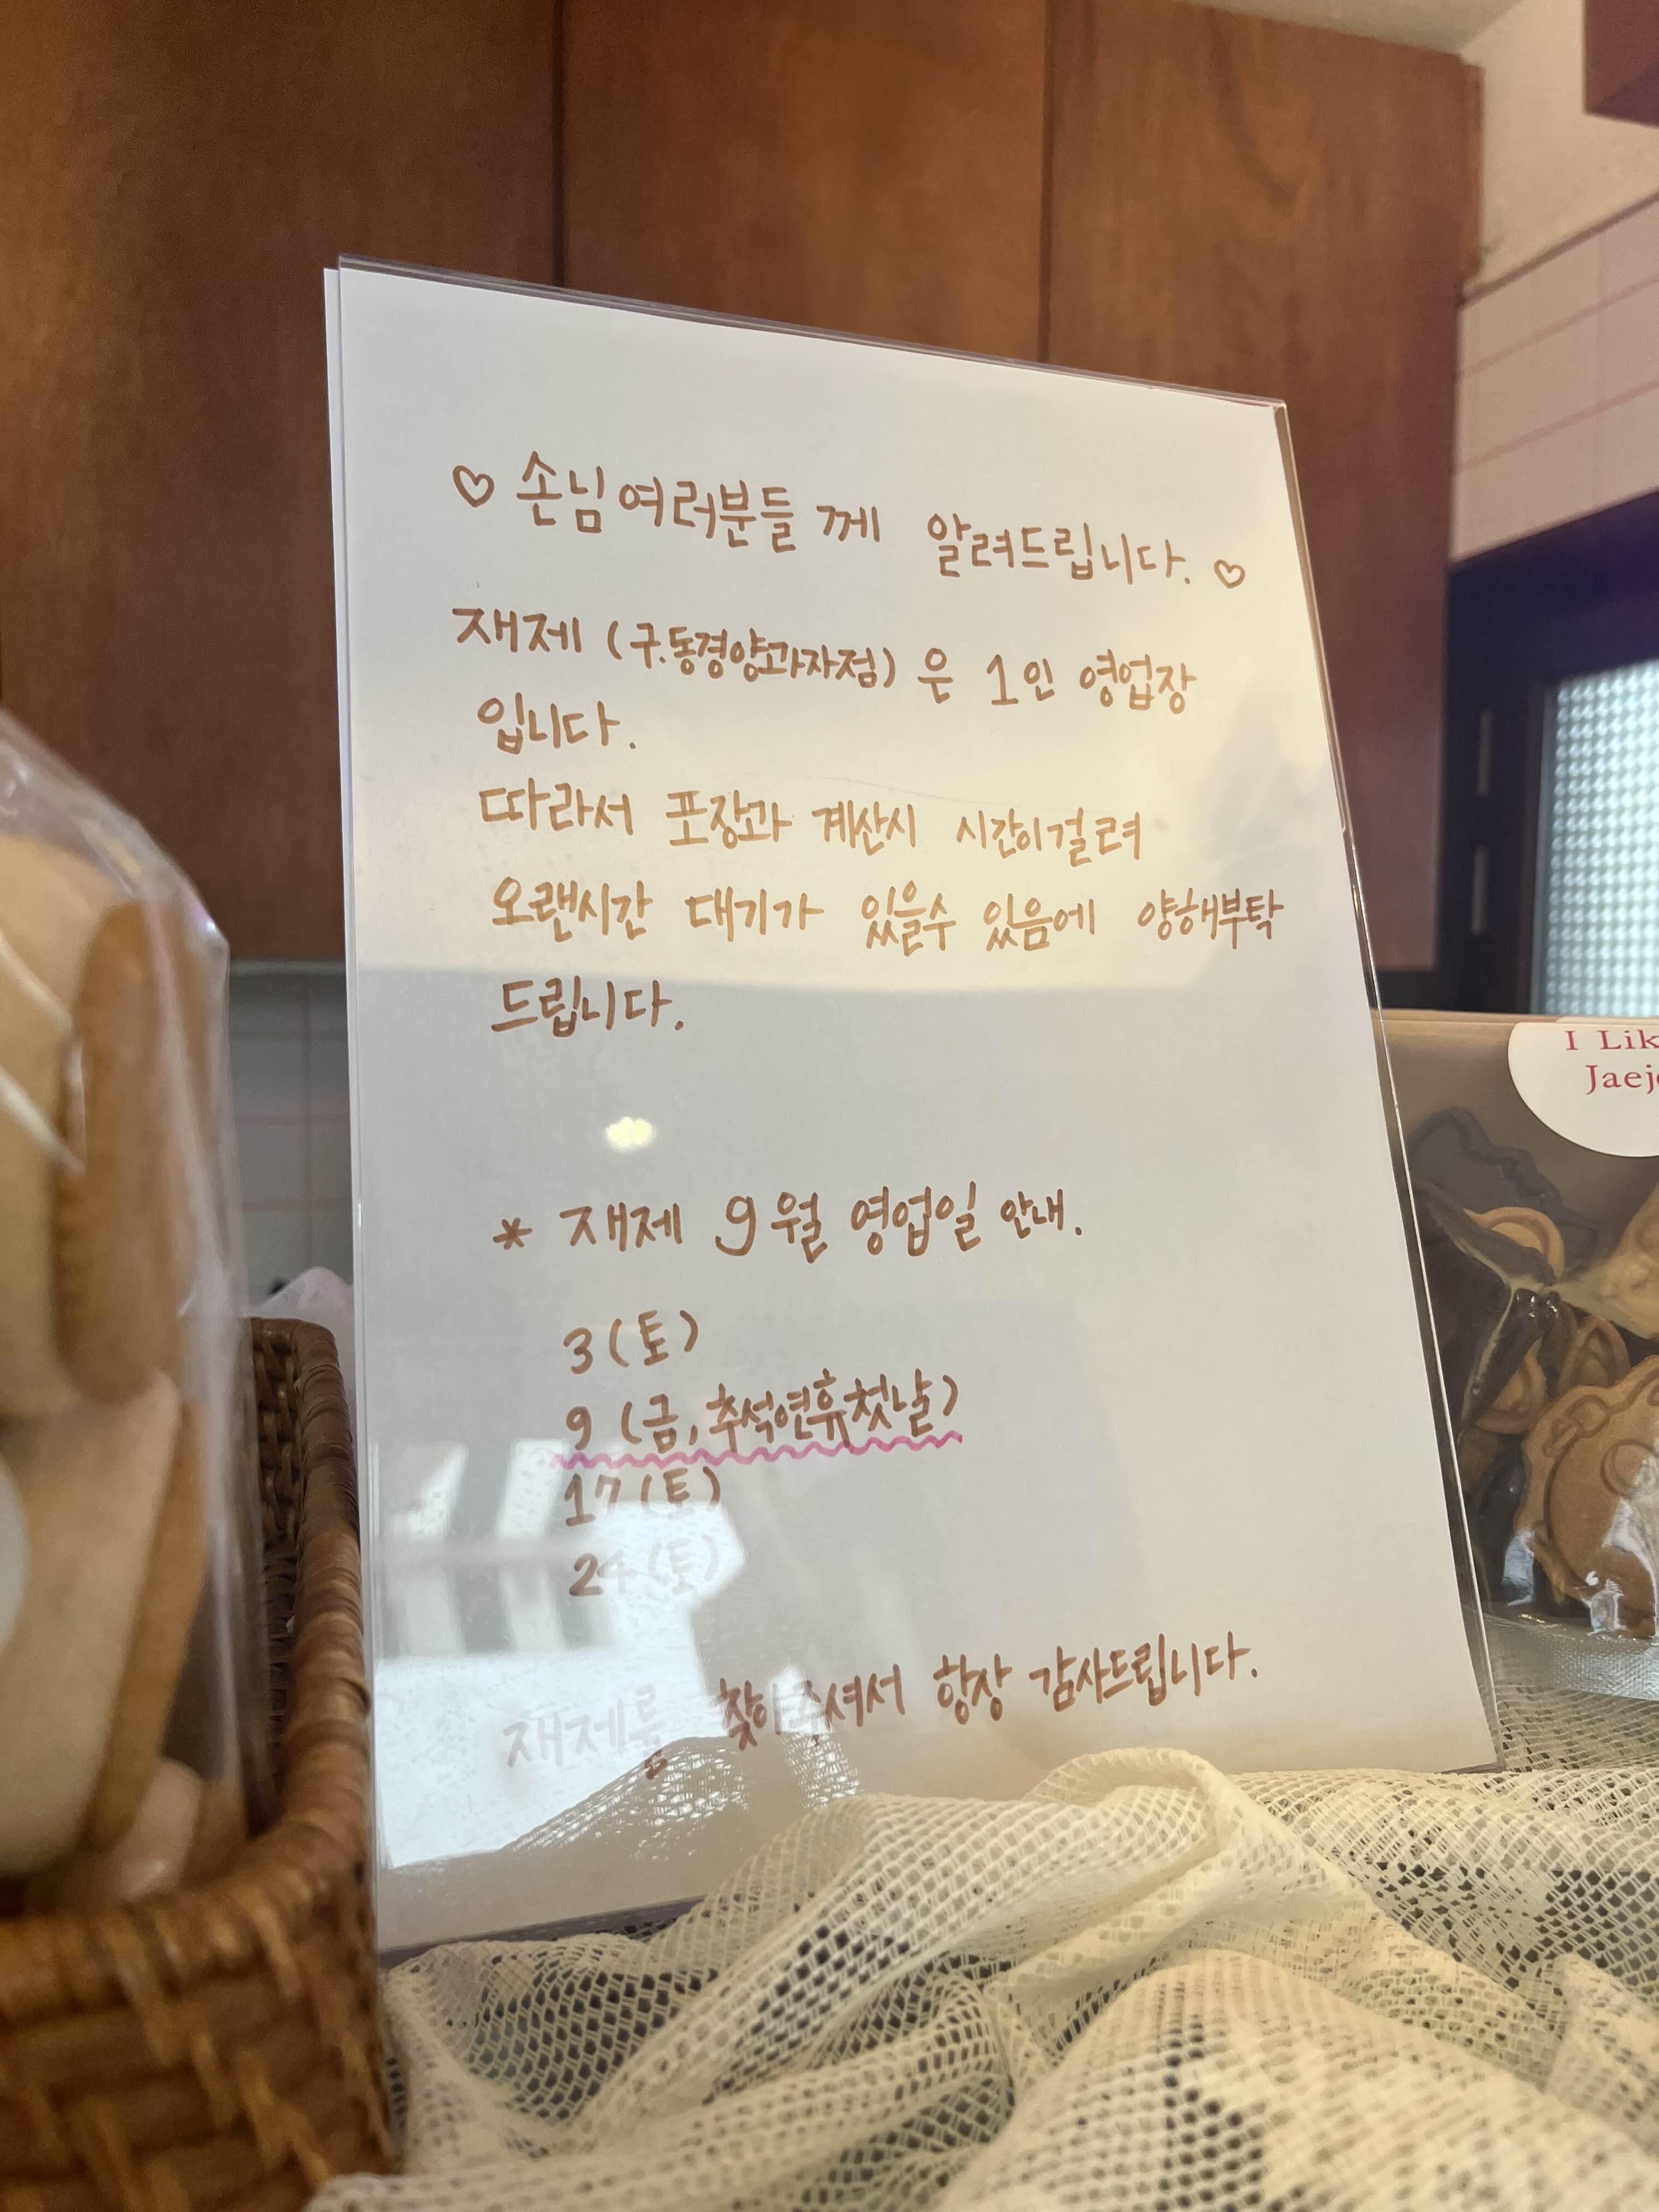 ♡ 손님 여러분들 께 알려드립니다. ♡
재제 (구.동경양과자점) 은 1인 영업장
입니다.
따라서 포장과 계산시 시간이걸려
오랜시간 대기가 있을수 있음에 양해부탁
드립니다.
* 재제 9월 영업일 안내.
3 (토)
9 (금, 추석연휴첫날)
17 (토)
24 (토)
재제를 찾아주셔서 항상 감사드립니다.
I Lik
Jaej